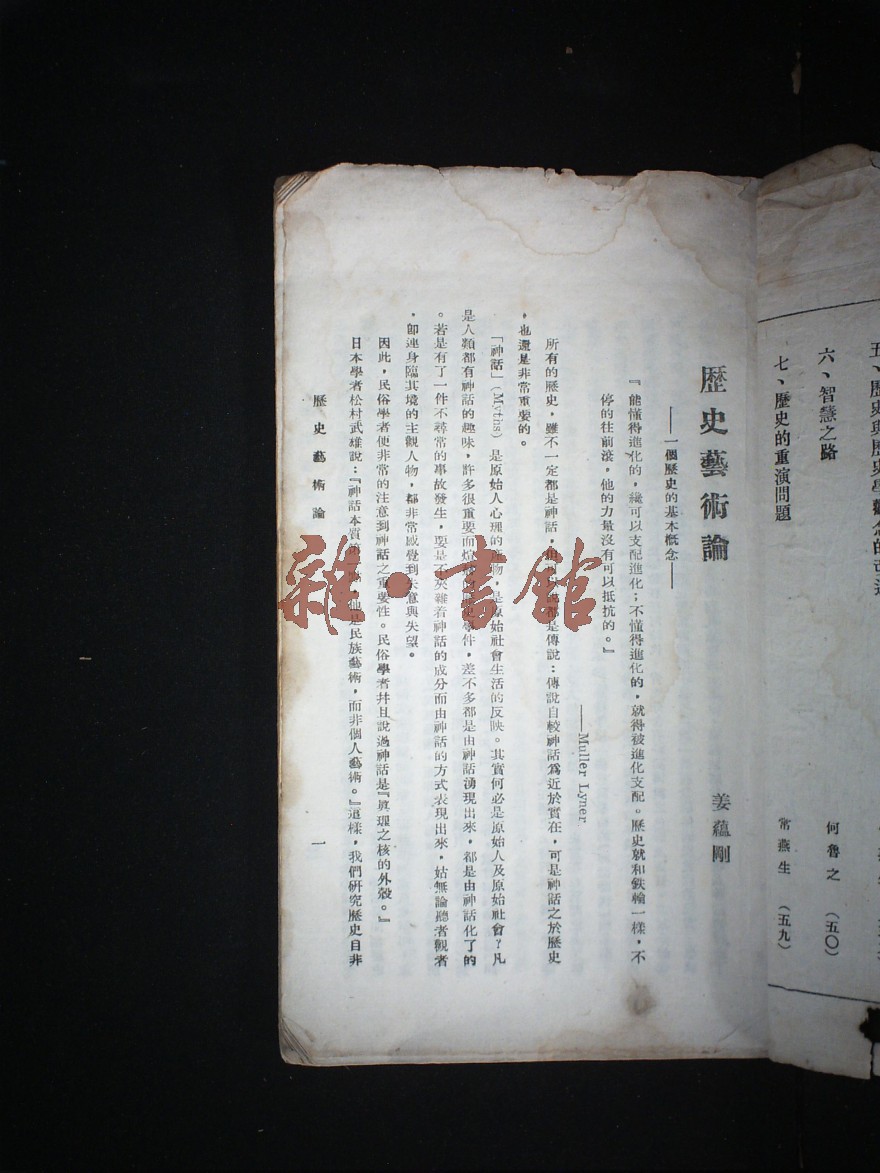 五、歷史與歷史學觀念的
六、智慧之路
何魯之 (五〇)
七、歷史的重演問題
常燕生 (五九)
歷史藝術論
姜蘊剛
——一個歷史的基本概念——
『能懂得進化的，纔可以支配進化；不懂得進化的，就得被進化支配。歷史就和鉄輪一樣，不
停的往前滾，他的力量沒有可以抵抗的。』
——Muller Lyner
所有的歷史，雖不一定都是神話，但可以說都是傳說：傳說自較神話為近於實在，可是神話之於歷史
，也還是非常重要的。
「神話」(Myths) 是原始人心理的產物，是原始社會生活的反映。其實何必是原始人及原始社會？凡
是人類都有神話的趣味，許多很重要而煊赫的歷史事件，差不多都是由神話湧現出來，都是由神話化了的
。若是有了一件不尋常的事故發生，要是不夾雜着神話的成分而由神話的方式表現出來，姑無論聽者觀者
，卽連身臨其境的主觀人物，都非常感覺到失意與失望。
因此，民俗學者便非常的注意到神話之重要性。民俗學者幷且說過神話是『眞理之核的外殼。』
日本學者松村武雄說：『神話本質第，他是民族藝術，而非個人藝術。』這樣，我們研究歷史自非
歷史藝術論
一
雜·書館